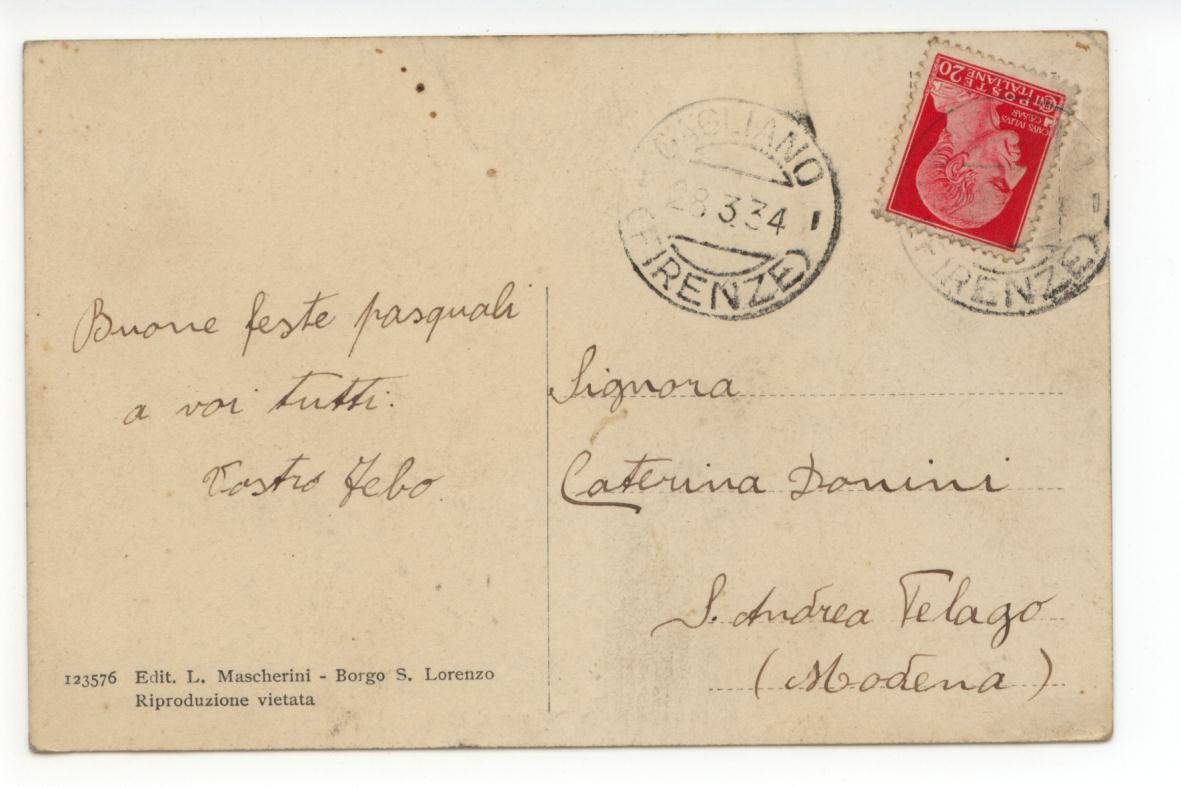 GAGLIANO
28.3.34
(FIRENZE)
POSTE
ITALIANE
20
CAIVS IVLIVS
CÆSAR
(FIRENZE)
Buone feste pasquali
a voi tutti.
Vostro Febo.
Signora
Caterina Donini
S. Andrea Pelago
(Modena)
123576 Edit. L. Mascherini - Borgo S. Lorenzo
Riproduzione vietata